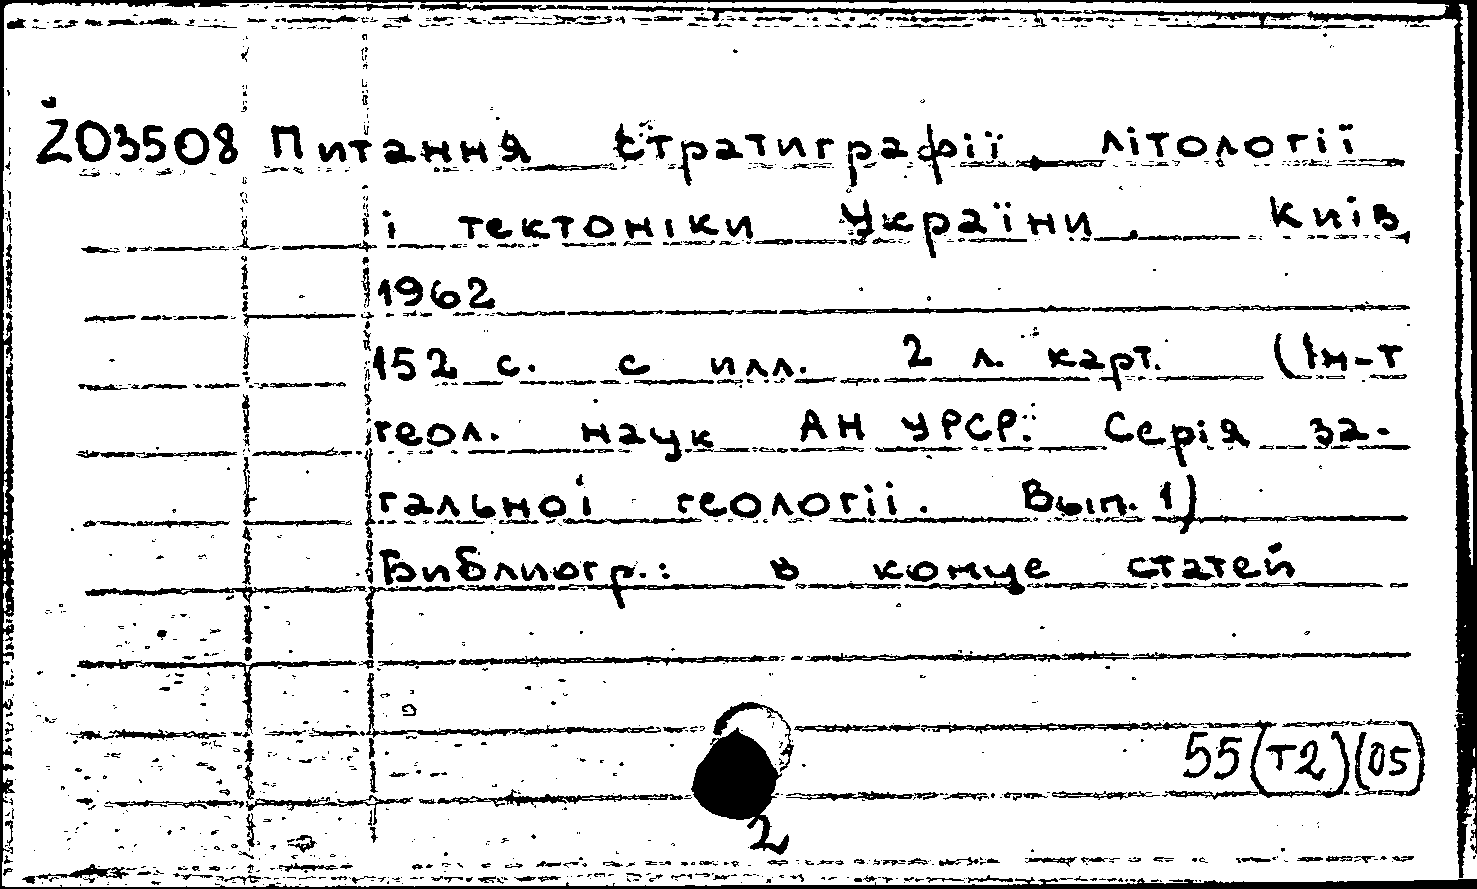 Z03508 Питання стратиграфії, літології
і тектоніки України. Київ,
1962
152 с. с илл. 2 л. карт. (Ін-т
геол. наук АН УРСР. Серія за-
гальної геології. Вып. 1)
Библиогр.: в конце статей
55(Т2)(05)
2